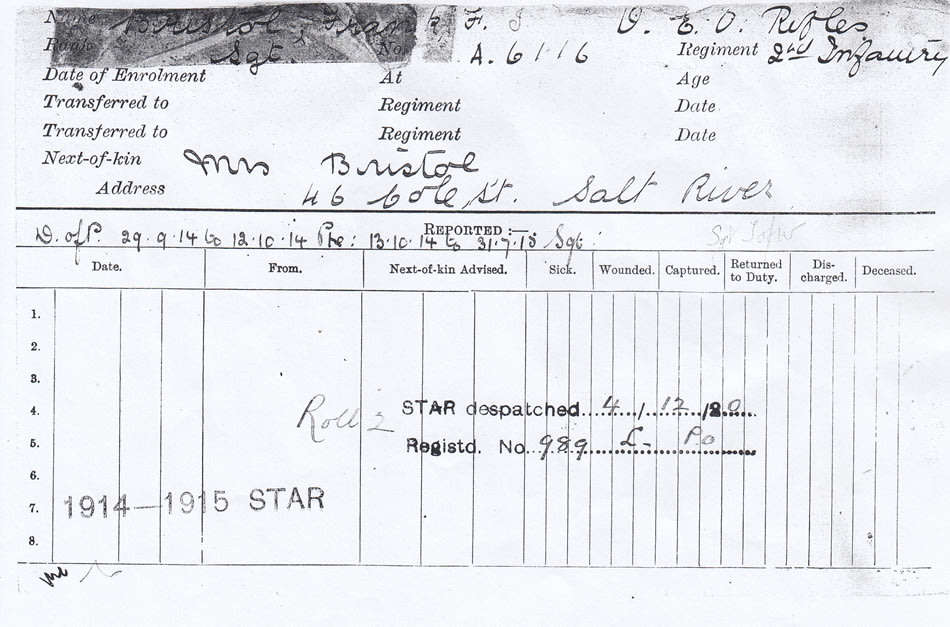 Name Bristol, Frank F. J D. E. O. Rifles
Rank Sgt. No. A. 6116 Regiment 2nd Infantry
Date of Enrolment At Age
Transferred to Regiment Date
Transferred to Regiment Date
Next-of-kin Mrs Bristol
Address 46 Cole St. Salt River
REPORTED :—
D. of P. 29.9.14 to 12.10.14 Pte: 13.10.14 to 31.7.15 Sgt:
Date. From. Next-of-kin Advised. Sick. Wounded. Captured. Returned to Duty. Dis-charged. Deceased.
1.
2.
3.
4. Roll 2 STAR despatched 4 / 12 /20
5. Registd. No. 989 L- Po
6.
7. 1914—1915 STAR
8.